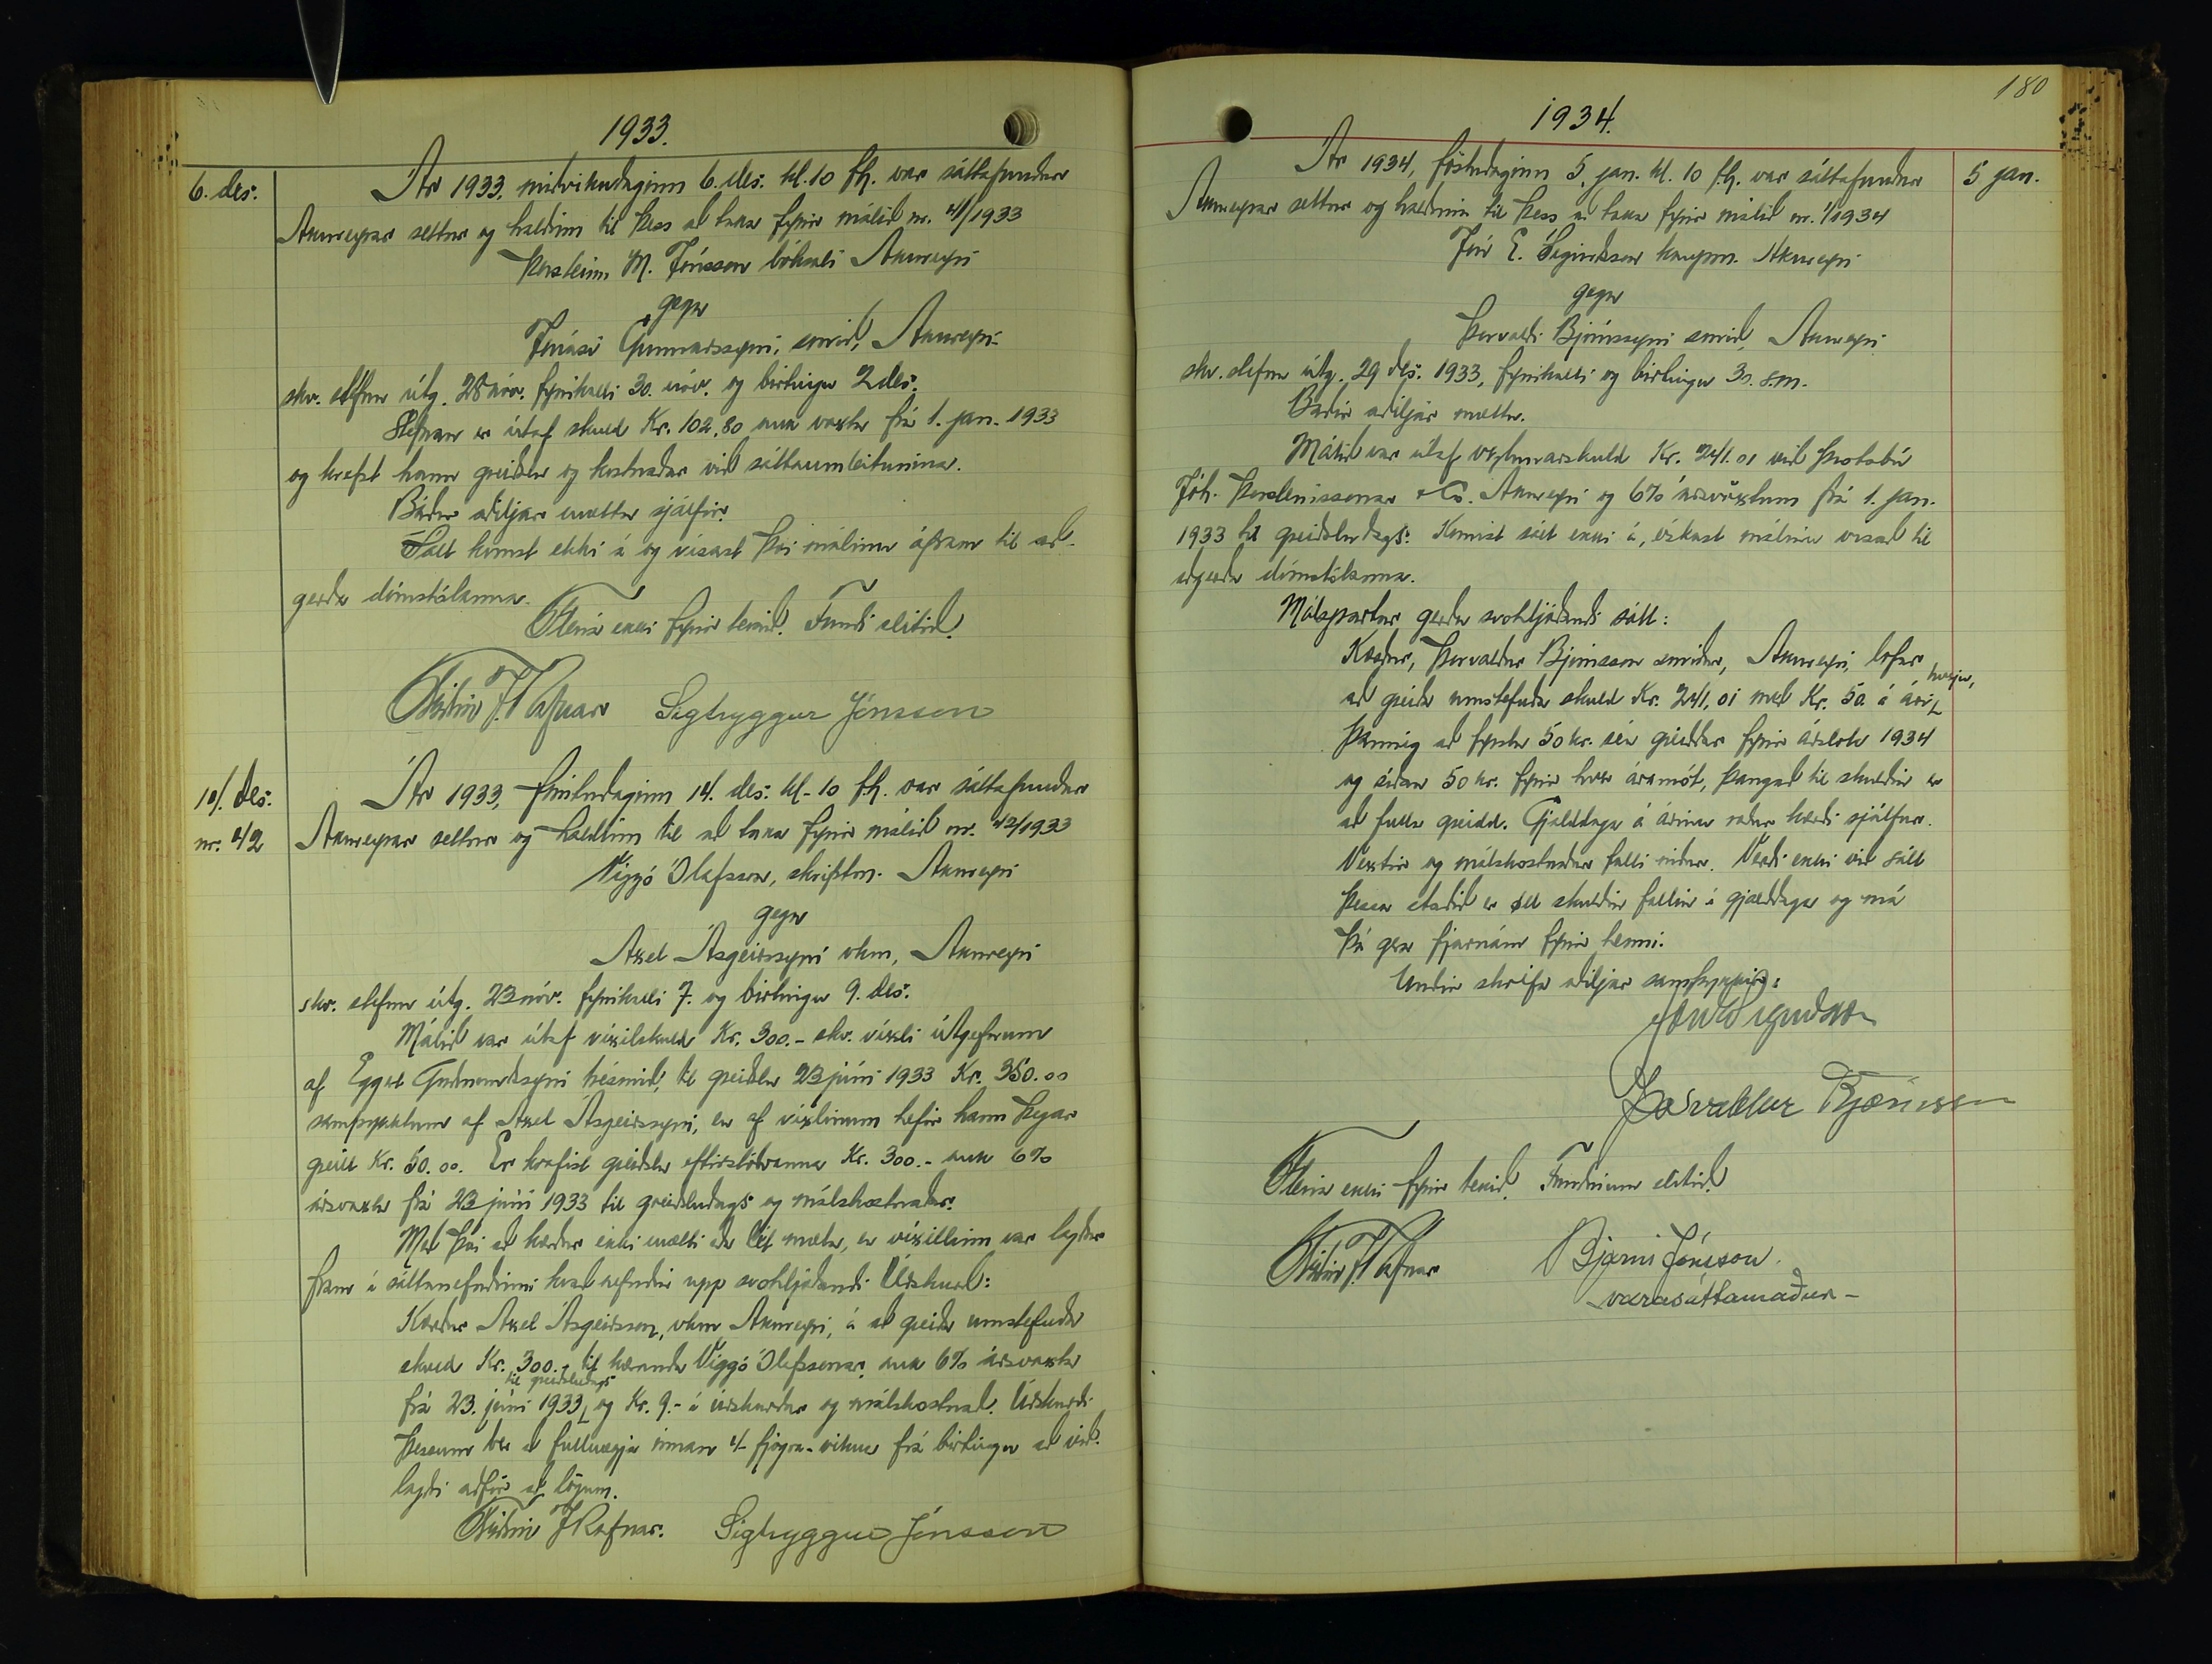 1933.
6. des.
Ár 1933, miðvikudaginn 6. des. kl. 10 f.h. var sáttafundur
Akureyrar settur og haldinn til þess að taka fyrir málið nr. 41/1933
Þorsteinn M. Jónsson bóksali Akureyri
gegn
Jónasi Gunnarssyni, smið, Akureyri
skv. stefnu útg. 28 nóv. fyrirkalli 30. nóv. og birtingu 2 des.
Stefnan er útaf skuld Kr. 102,80 auk vaxta frá 1. jan. 1933
og krefst hann greiðslu og kostnaðar við sáttaumleitunina.
Báðir aðiljar mættu sjálfir.
Sátt komst ekki á og vísast því málinu áfram til að-
gerða dómstólanna.
Fleira ekki fyrir tekið. Fundi slitið.
Friðrik J. Rafnar Sigtryggur Jónsson
14. des.
nr. 42
Ár 1933, fimtudaginn 14. des. kl. 10 f.h. var sáttafundur
Akureyrar settur og haldinn til að taka fyrir málið nr. 42/1933
Viggó Ólafsson, skrifstm. Akureyri
gegn
Axel Ásgeirssyni vkm, Akureyri
skv. stefnu útg. 23 nóv. fyrirkalli 7. og birtingu 9. des.
Málið var útaf víxilskuld Kr. 300.- skv. víxli útgefnum
af Eggert Guðmundssyni trésmið, til greiðslu 23 júní 1933 Kr. 350.00
samþykktum af Axel Ásgeirssyni, en af víxlinum hefir hann þegar
greitt Kr. 50.00. Er krafist greiðslu eftirstöðvanna Kr. 300.- auk 6%
ársvaxta frá 23 júní 1933 til greiðsludags og málskostnaðar.
Með því að kærður ekki mætti eða lét mæta, en víxillinn var lagður
fram í sáttanefndinni kvað nefndin upp svohljóðandi Úrskurð:
Kærður Axel Ásgeirsson, vkm Akureyri, á að greiða umstefnda
skuld Kr. 300.- til kæranda Viggó Ólafssonar, auk 6% ársvaxta
frá 23. júní 1933 til greiðsludags og Kr. 9.- í úrskurðar og málskostnað. Úrskurði
þessum ber að fullnægja innan 4- fjögra- vikna frá birtingu að við-
lagðri aðför að lögum.
Friðrik J. Rafnar. Sigtryggur Jónsson
180
1934.
5 jan.
Ár 1934, föstudaginn 5. jan. kl. 10 f.h. var sáttafundur
Akureyrar settur og haldinn til þess að taka fyrir málið nr. 1/1934
Jón E. Sigurðsson kaupm. Akureyri
gegn
Þorvaldi Björnssyni smið, Akureyri
skv. stefnu útg. 29 des. 1933, fyrirkalli og birtingu 30. s.m.
Báðir aðiljar mættu.
Málið var útaf verslunarskuld Kr. 241.01 við þrotabú
Jóh. Þorsteinssonar & Co. Akureyri og 6% ársvöxtum frá 1. jan.
1933 til greiðsludags. Komist sátt ekki á, óskast málinu vísað til
aðgerða dómstólanna.
Málspartar gerðu svohljóðandi sátt:
Kærður, Þorvaldur Björnsson smiður, Akureyri, lofar
að greiða umstefnda skuld Kr. 241,01 með Kr. 50. á ári hverju,
þannig að fyrstu 50 kr. séu greiddar fyrir árslok 1934
og síðan 50 kr. fyrir hver áramót, þangað til skuldin er
að fullu greidd. Gjalddaga á árinu ræður kærði sjálfur.
Vextir og málskostnaður falli niður. Verði ekki við sátt
þessa staðið er öll skuldin fallin í gjalddaga og má
þá gera fjárnám fyrir henni.
Undir skrifa aðiljar samþykkir:
Jón E Sigurðsson
Þorvaldur Björnsson
Fleira ekki fyrir tekið. Fundinum slitið.
Friðrik J. Rafnar Bjarni Jónsson.
varasáttamaður-